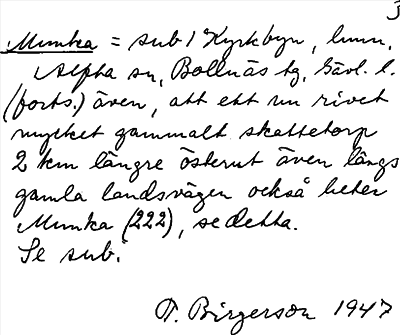 3
Munka = sub 1 Kyrkbyn, hmn,
Alfta sn, Bollnäs tg, Gävl. l.
(forts.) även, att ett nu rivet
mycket gammalt skattetorp
2 km längre österut även längs
gamla landsvägen också heter
Munka (222), se detta.
Se sub.
T. Birgerson 1947